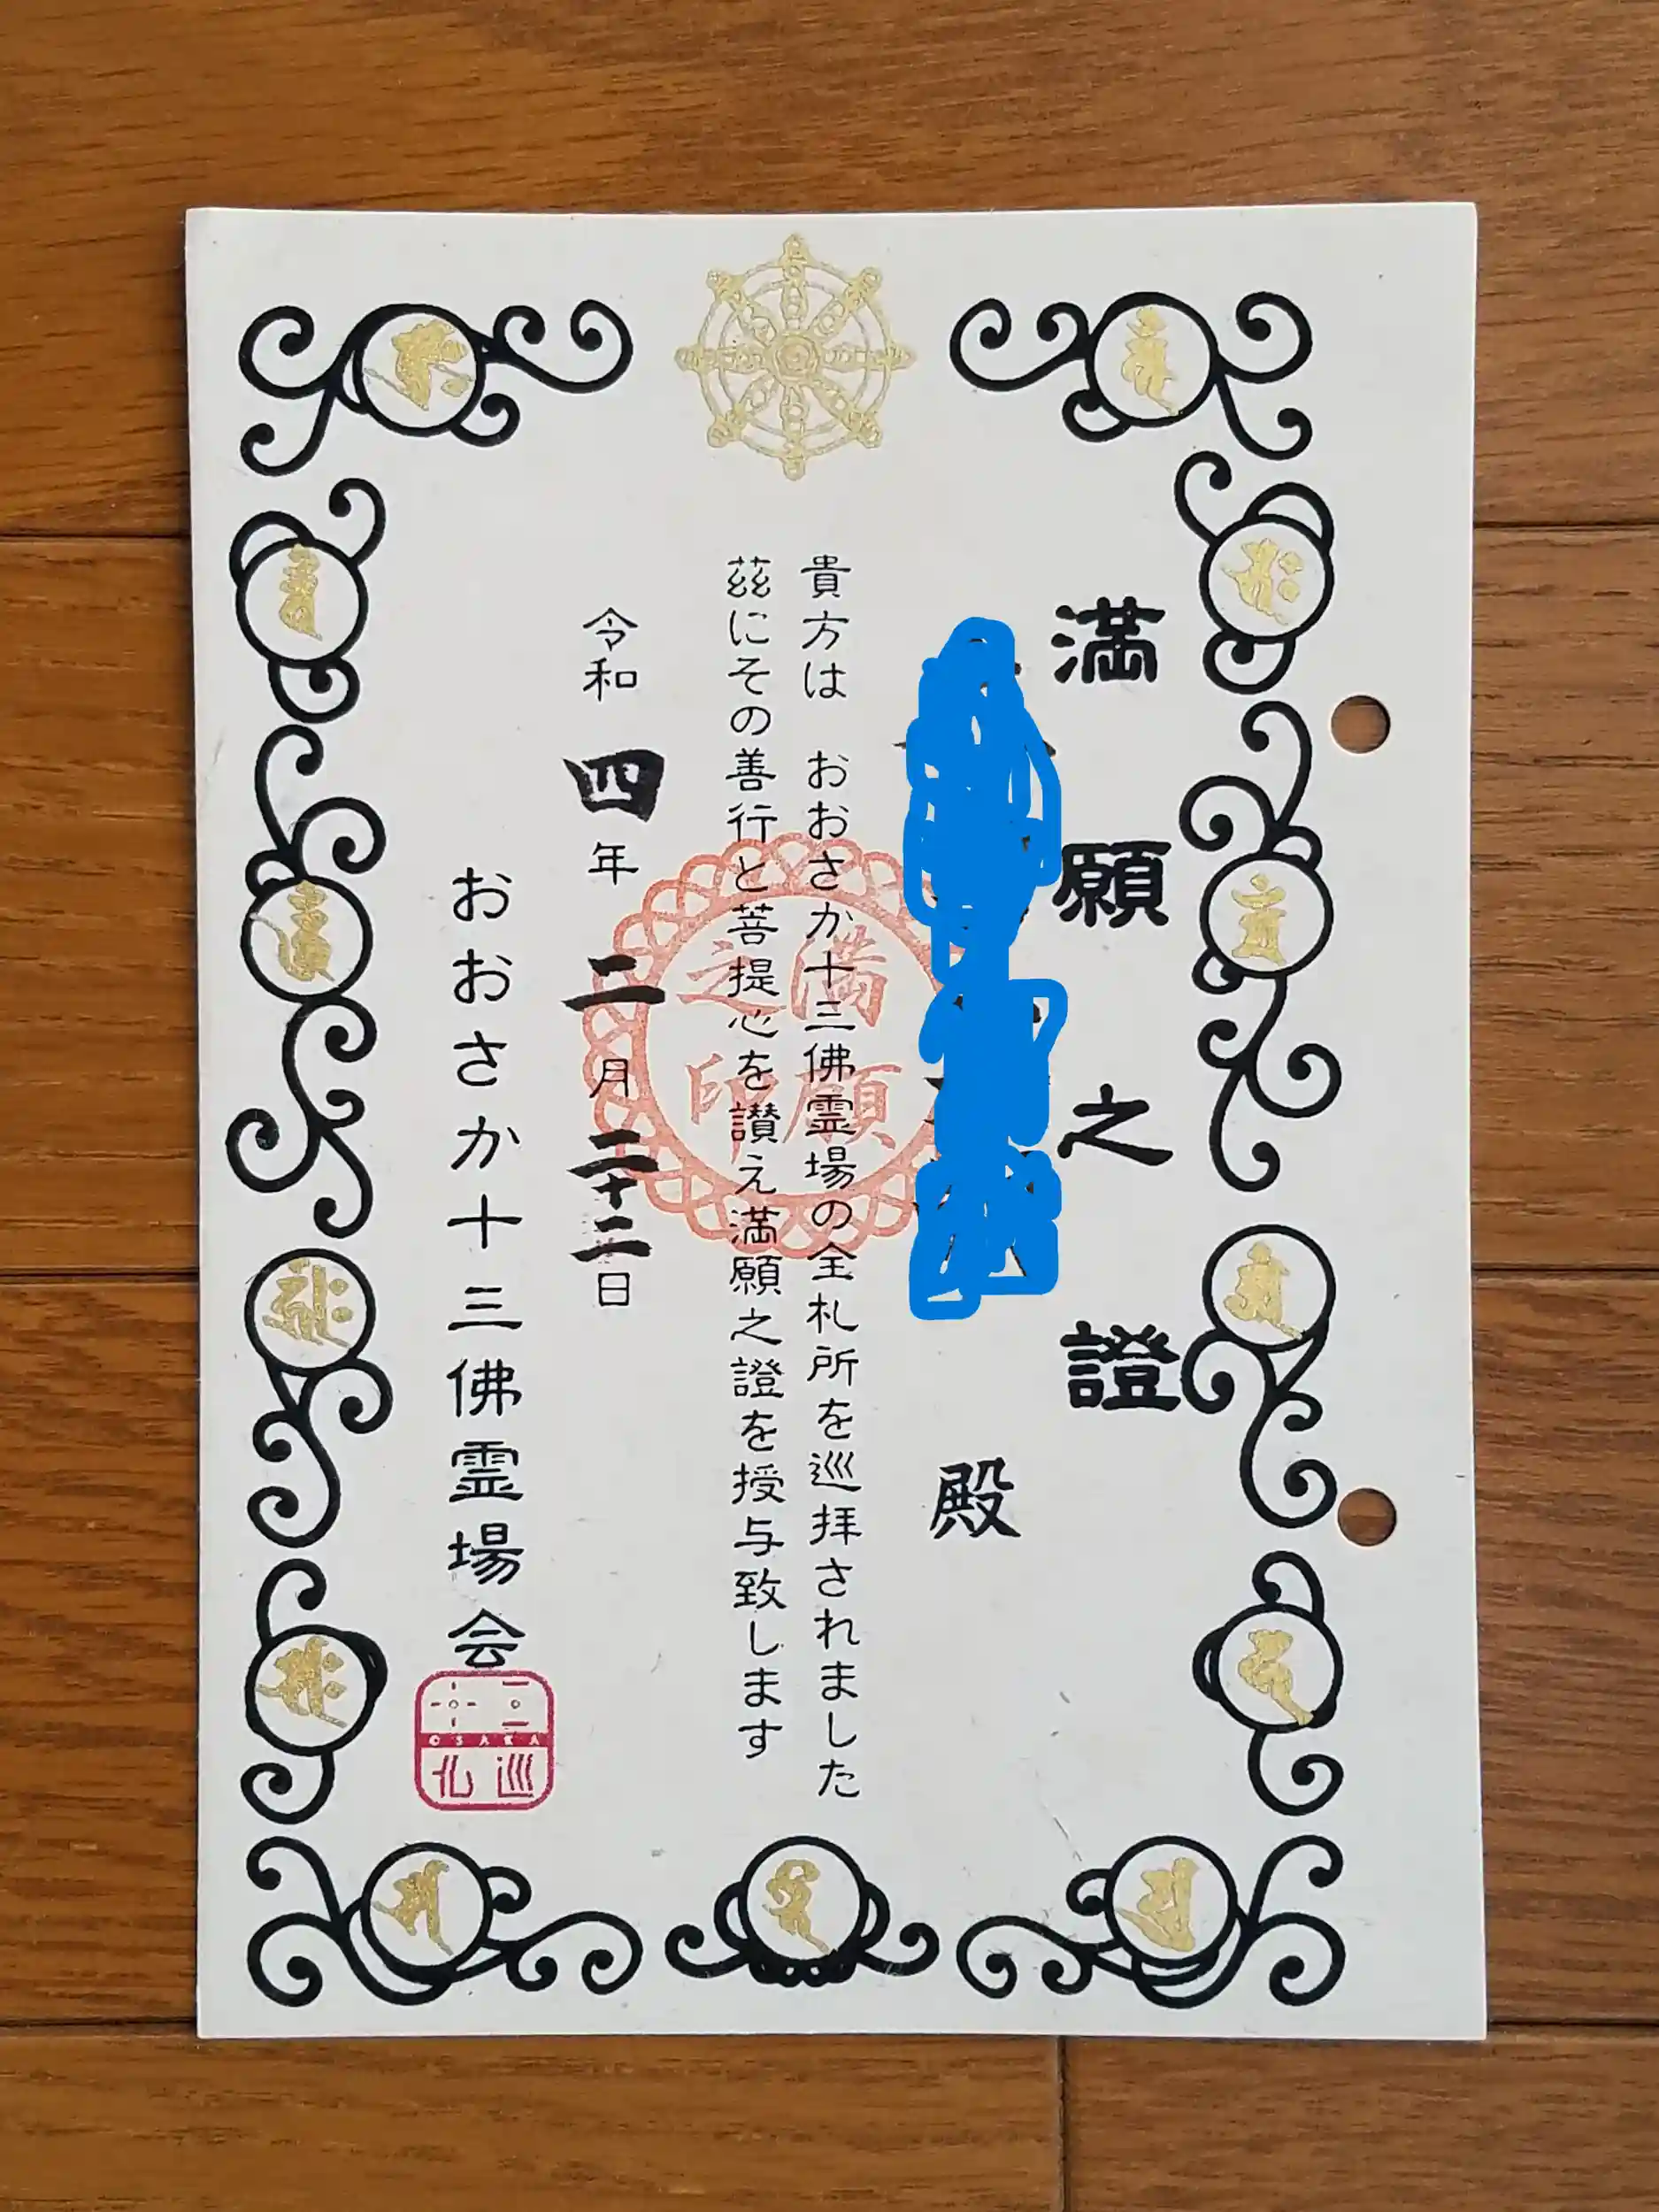 満願之證
殿
貴方は　おおさか十三佛霊場の全札所を巡拝されました
茲にその善行と菩提心を讃え満願之證を授与致します
満願之印
令和四年二月二十二日
おおさか十三佛霊場会
OSAKA